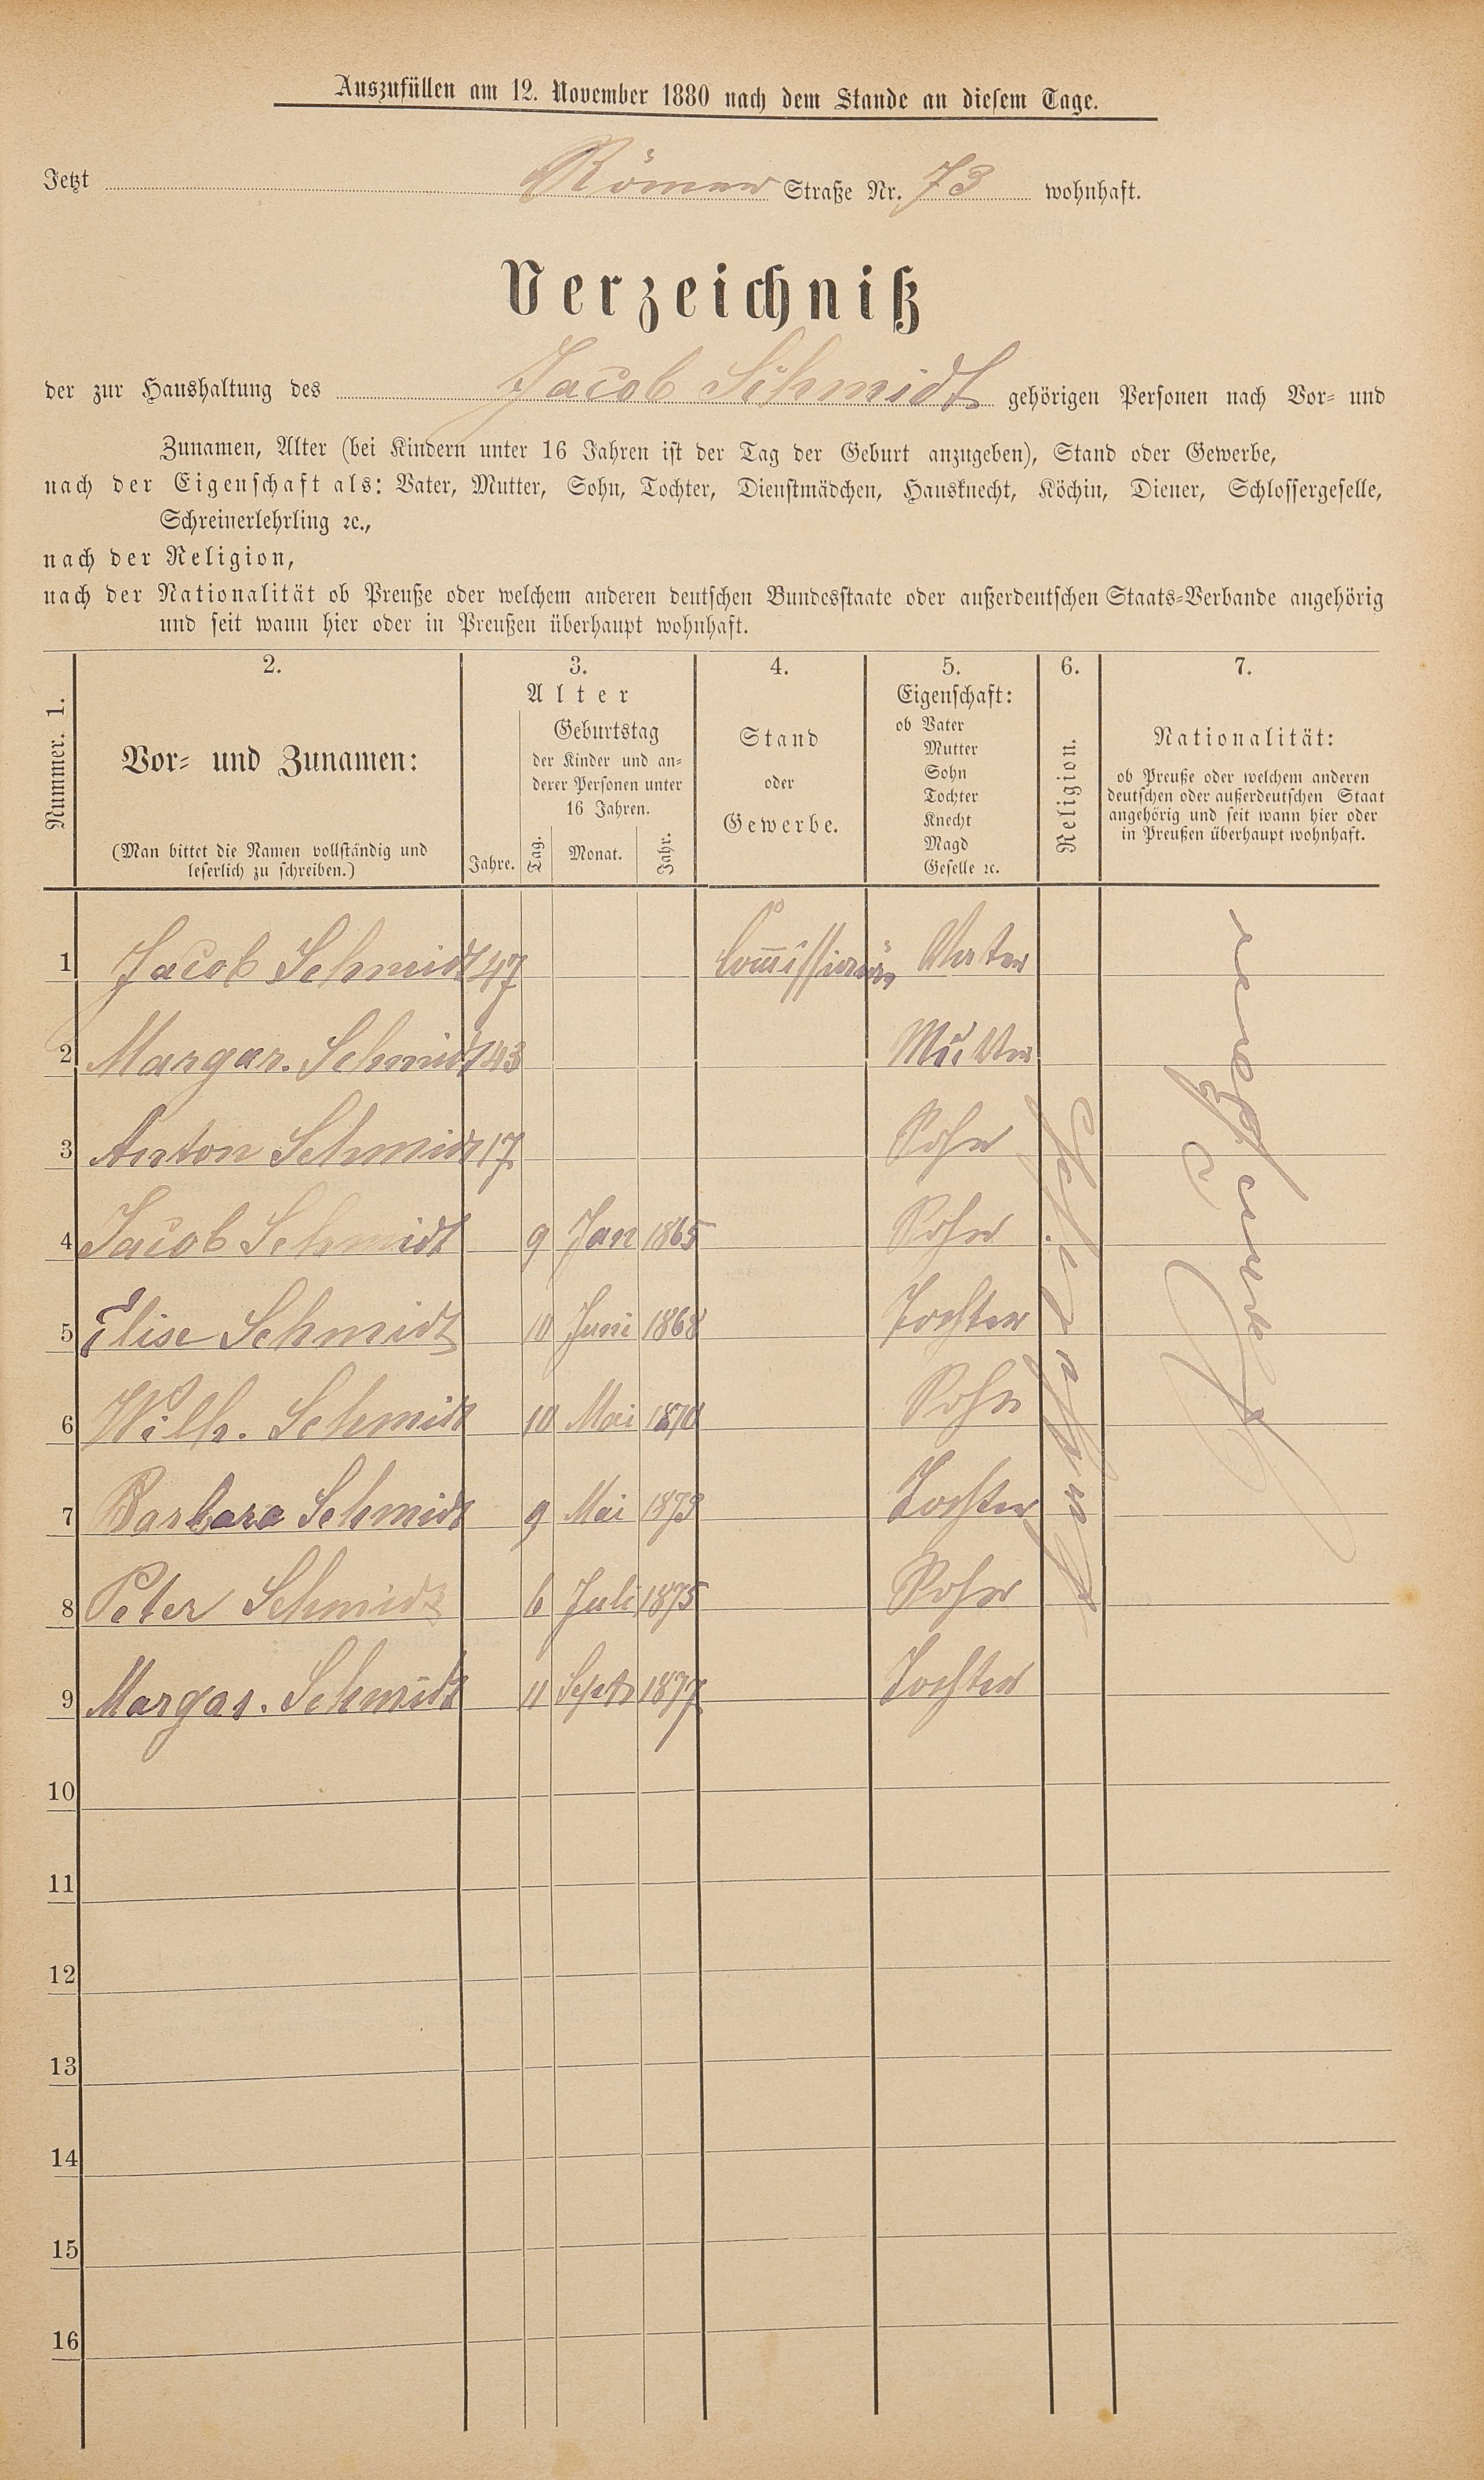 Auszufüllen am 12. November 1880 nach dem Stande an diesem Tage.
Jetzt Römer Straße Nr. 73 wohnhaft.
Verzeichniß
der zur Haushaltung des Jacob Schmidt gehörigen Personen nach Vor- und
Zunamen, Alter (bei Kindern unter 16 Jahren ist der Tag der Geburt anzugeben), Stand oder Gewerbe,
nach der Eigenschaft als: Vater, Mutter, Sohn, Tochter, Dienstmädchen, Hausknecht, Köchin, Diener, Schlossergeselle,
Schreinerlehrling ꝛc.,
nach der Religion,
nach der Nationalität ob Preuße oder welchem anderen deutschen Bundesstaate oder außerdeutschen Staats-Verbande angehörig
und seit wann hier oder in Preußen überhaupt wohnhaft.
Nummer. 1.
2.
Vor- und Zunamen:
(Man bittet die Namen vollständig und
leserlich zu schreiben.)
3.
Alter
Jahre.
Geburtstag
der Kinder und an-
derer Personen unter
16 Jahren.
Tag. Monat. Jahr.
4.
Stand
oder
Gewerbe.
5.
Eigenschaft:
ob Vater
Mutter
Sohn
Tochter
Knecht
Magd
Geselle ꝛc.
6.
Religion.
7.
Nationalität:
ob Preuße oder welchem anderen
deutschen oder außerdeutschen Staat
angehörig und seit wann hier oder
in Preußen überhaupt wohnhaft.
1 Jacob Schmidt 47 Commissionär Vater
2 Margar. Schmidt 43 Mutter
3 Anton Schmidt 17 Sohn
4 Jacob Schmidt 9 Jan 1865 Sohn
5 Elise Schmidt 10 Juni 1868 Tochter
6 Wilh. Schmidt 10 Mai 1870 Sohn
7 Barbara Schmidt 9 Mai 1873 Tochter
8 Peter Schmidt 6 Juli 1875 Sohn
9 Margar. Schmidt 11 Sept 1877 Tochter
Katholisch
Preußen
10
11
12
13
14
15
16